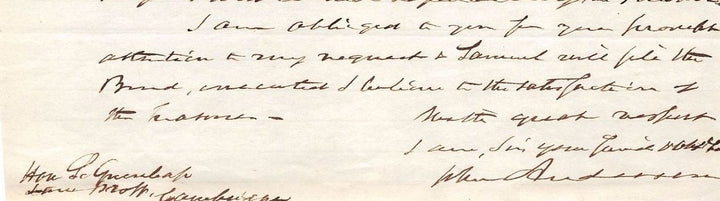 I am obliged to you for your prompt
attention to my request & Samuel will file the
Bond, executed I believe to the satisfaction of
the Treasurer —
With great respect
I am, Sir your friend & Obdt
John Anderson
Hon S. Greenleaf
Cambridge